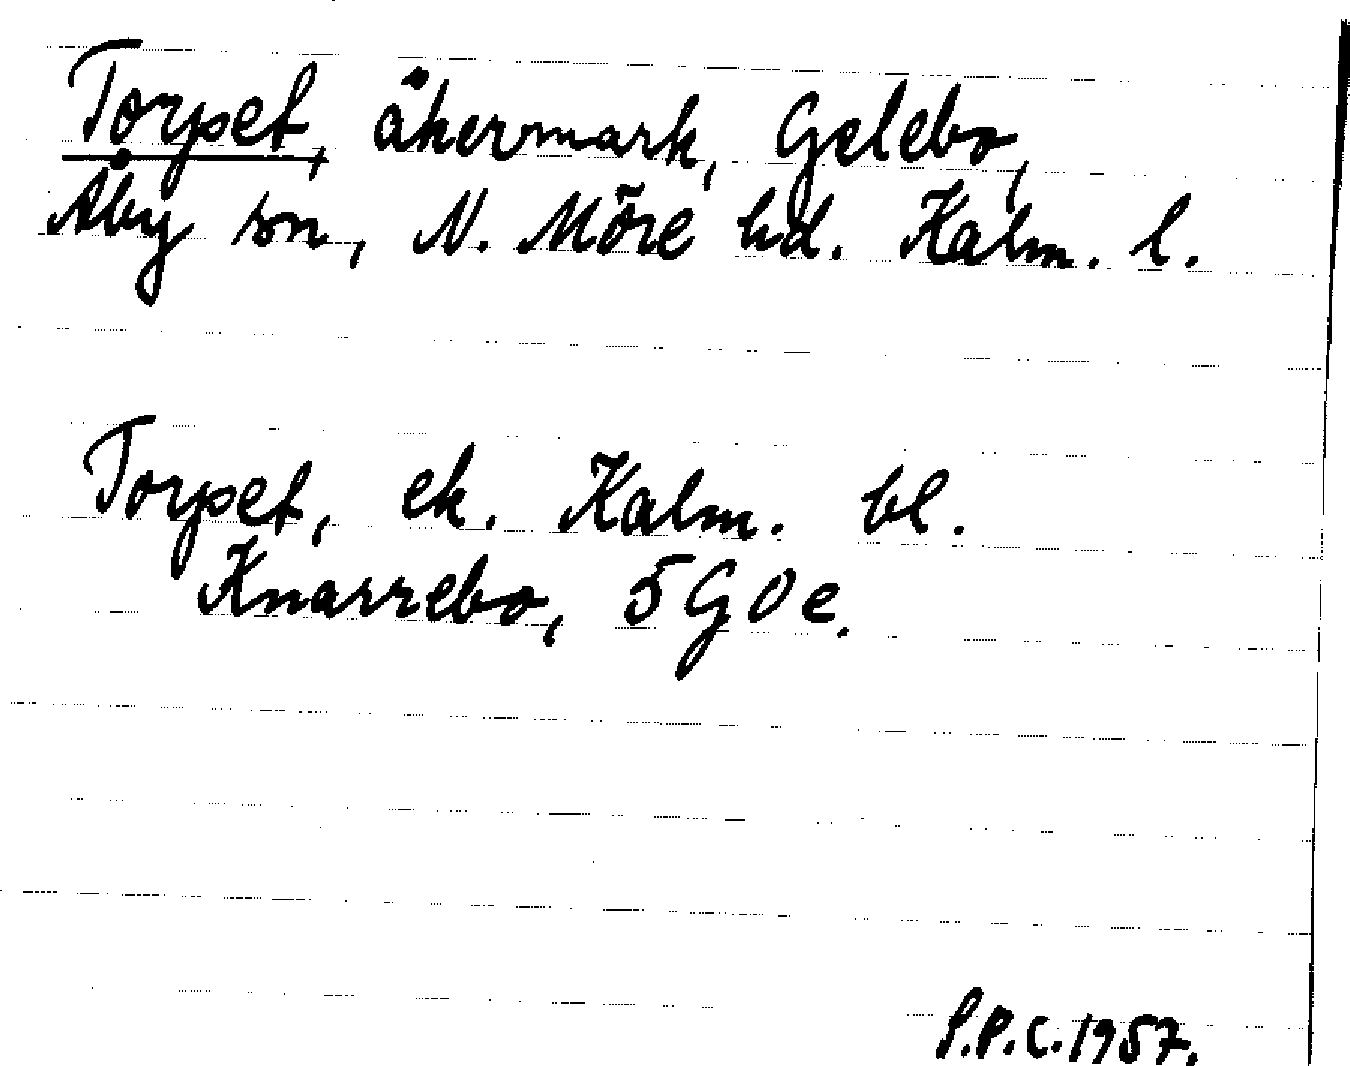 Torpet, åkermark, Gelebo,
Åby sn, N. Möre hd. Kalm. l.
Torpet, ek. Kalm. bl.
Knarrebo, 5G0e.
P.P.C. 1957.